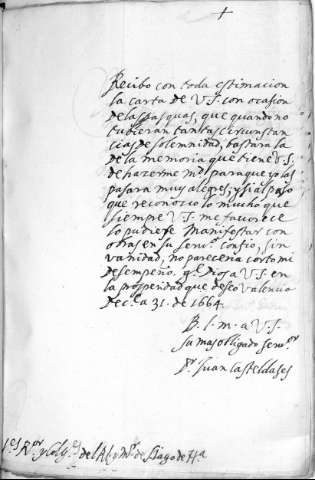 +
Recibo con toda estimacion
la carta de V.S. con ocasion
de las pasquas, que quando no
tubieran tantas circunstan
cias de solemnidad, bastara la
de la memoria que tiene V.S.
de hazerme md para que yo las
pasara muy alegres, y si al paso
que reconozco lo mucho que
siempre V.S. me favorece
lo pudiese manifestar con
obras en su servo. confio, sin
vanidad, no pareceria corto mi
desempeño. gde Dios a V.S. en
la prosperidad que deseo Valencia
Dec.e a 31. de 1664
B. l. m. a V.S.
su mas obligado serv.or
Juan Casteldases